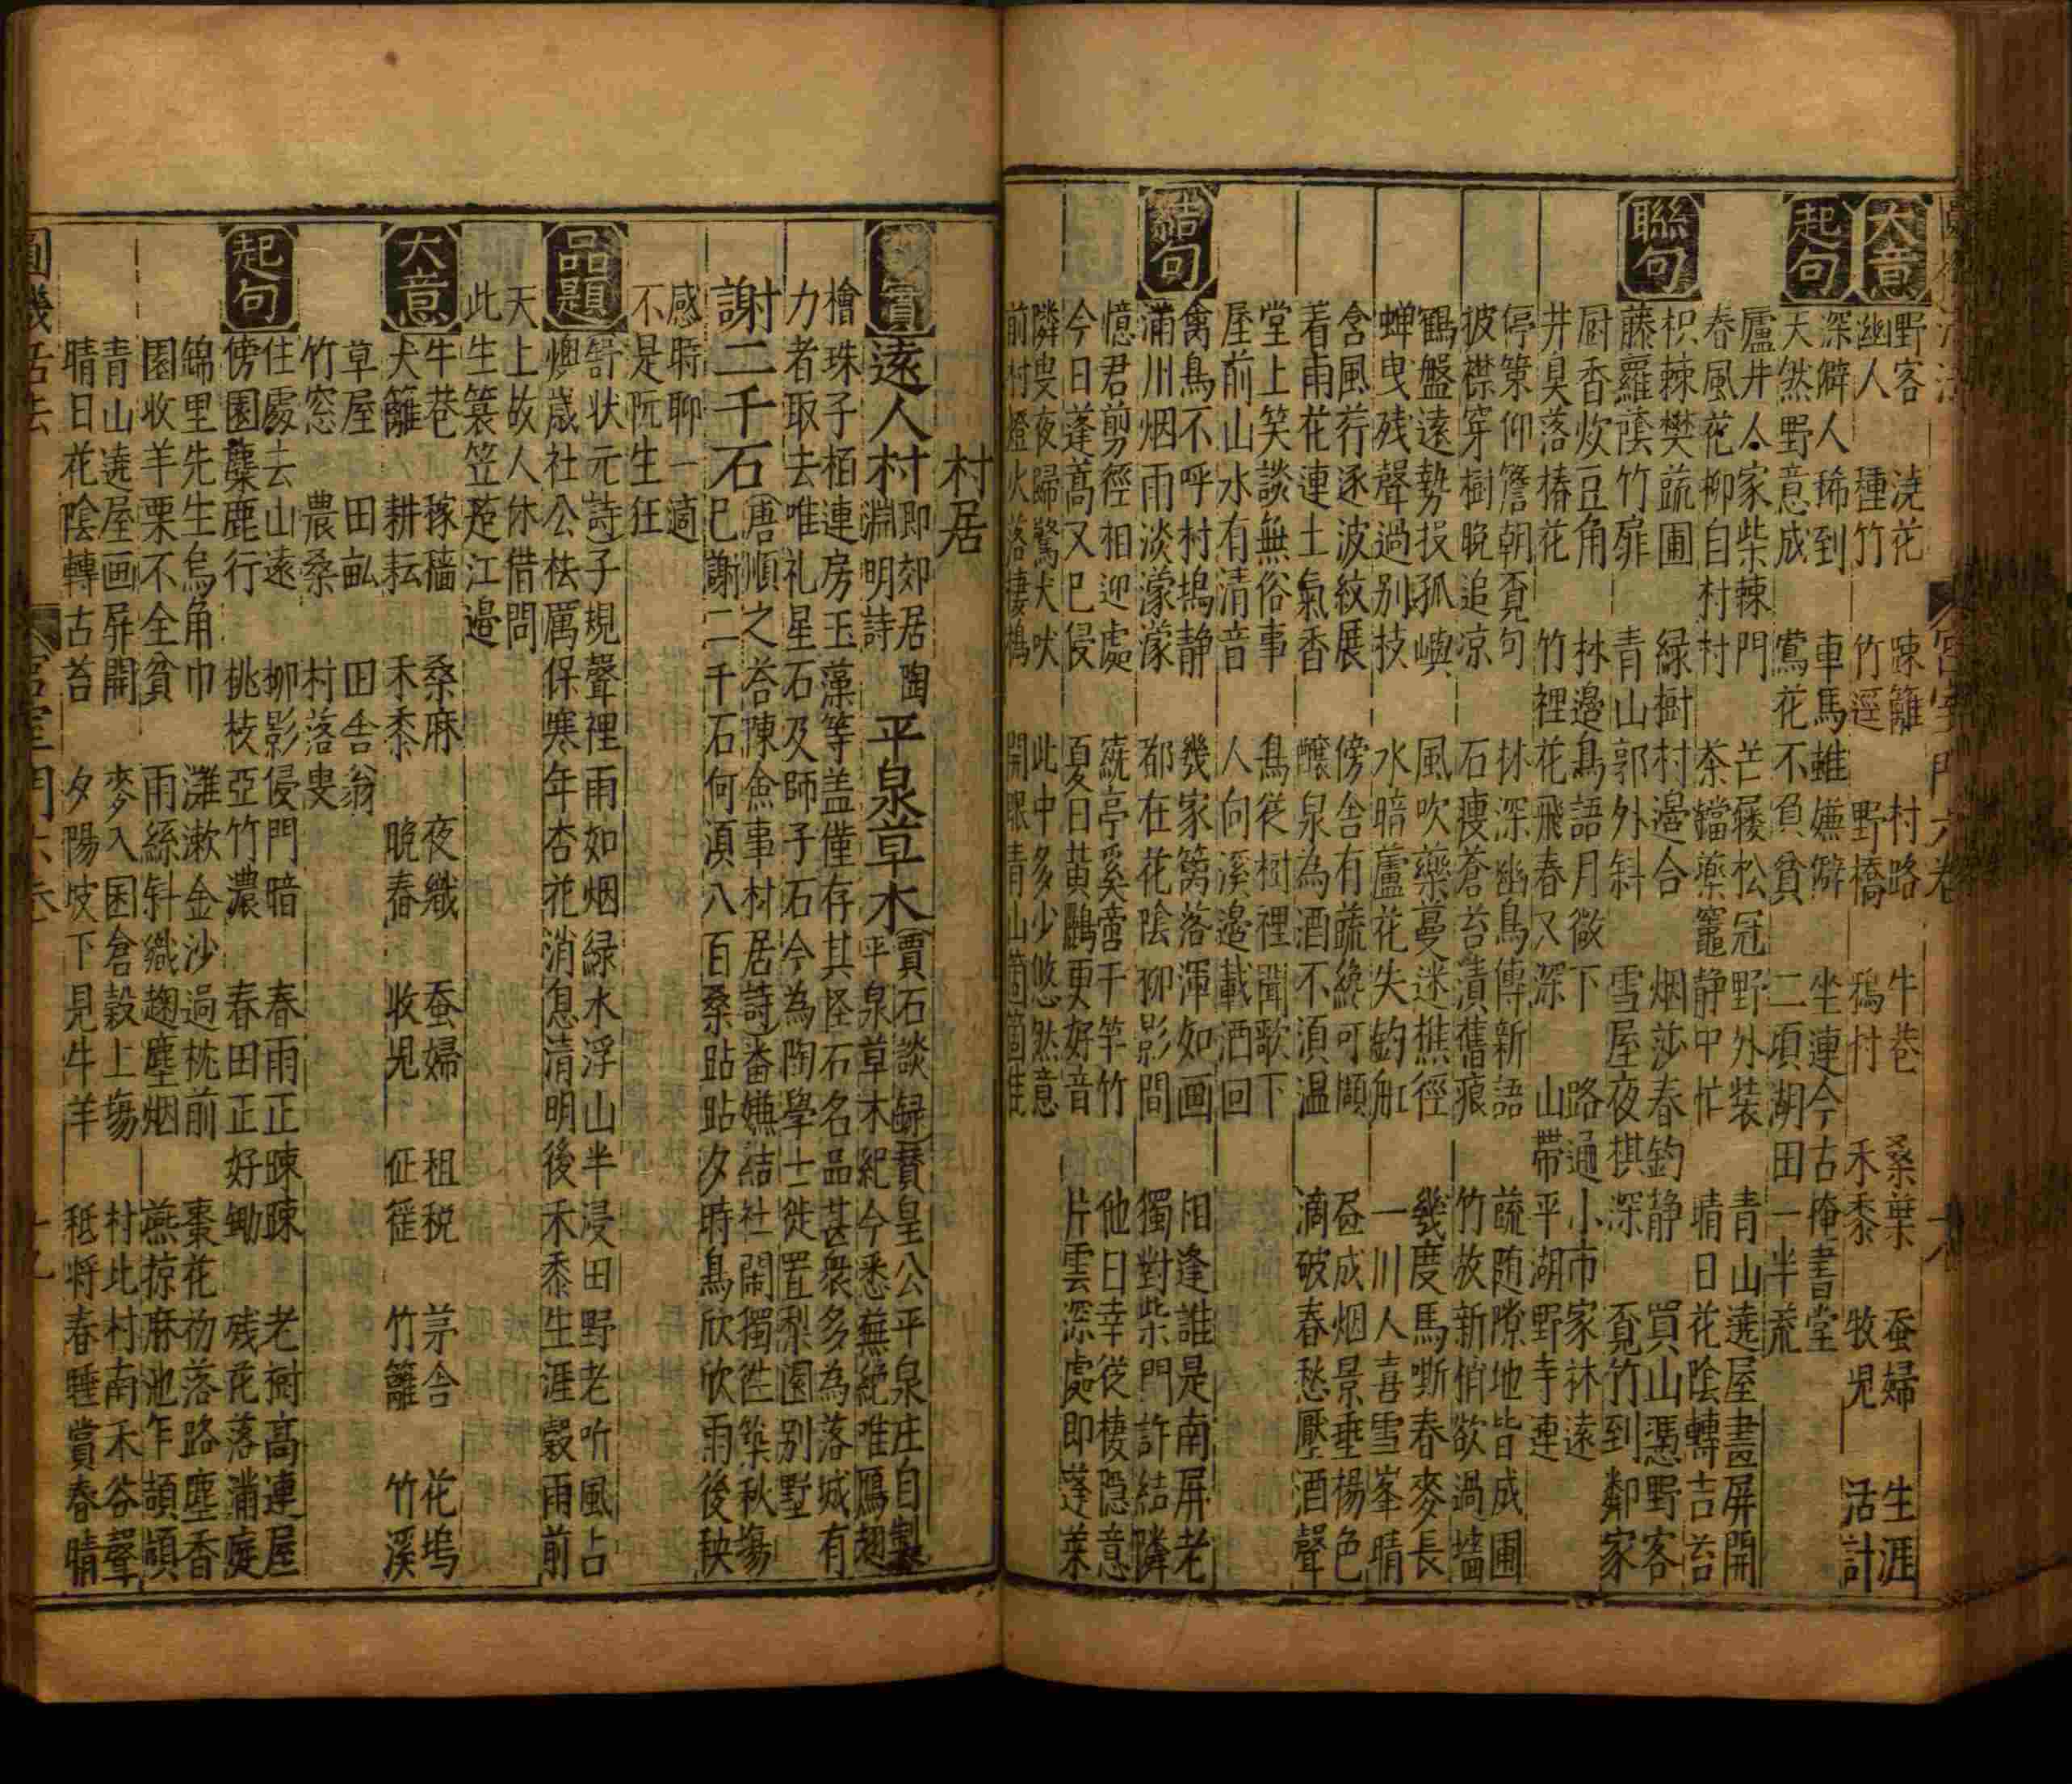 野客　澆花　踈籬　村路　牛巷　桑葉　蚕婦　生涯
大意
幽人　種竹　竹逕　野橋　鴉村　禾黍　牧児　活計
深僻人稀到　車馬雖嫵僻　坐連今古掩書堂
起句
天然野意成　鶯花不負貧　二頃胡田一半荒
廬井人家柴棘門　芒屨松冠野外装　青山遶屋畫屏開
春風花柳自村村　茶鐺藥竈静中忙　晴日花陰轉吉苔
枳棘樊蔬圃　緑樹村邉合　烟莎春釣静　買山憑野客
聯句
藤蘿蔭竹扉　青山郭外斜　雪屋夜棋深　覔竹到鄰家
厨香炊豆角　林邉鳥語月欲下　路通小市家林遠
井臭落椿花　竹裡花飛春又深　山帶平湖野寺連
停策仰簷朝覔句　林深幽鳥傳新語　蔬随隙地皆成圃
披襟穿樹晩追凉　石痩蒼苔漬舊痕　竹放新梢欲過墻
鶴盤遠勢投孤嶼　風吹藥蔓迷樵徑　幾度馬嘶春麥長
蝉曳残聲過别枝　水暗蘆花失釣舡　一川人喜雪峯晴
含風荇逐波紋展　傍舎有蔬纔可擷　昼成烟景垂楊色
着雨花連土氣香　釀泉為酒不湏温　滴破春愁壓酒聲
堂上笑談無俗事　鳥從樹裡聞歌下
屋前山水有清音　人向溪邉載酒回
禽鳥不呼村塢静　幾家籬落渾如画　相逢誰是南屏老
結句
滿川烟雨淡濛濛　都在花陰柳影間　獨對柴門許結隣
憶君剪徑相迎處　蔬亭奚啻千竿竹　他日幸從棲隠意
今日蓬蒿又已侵　夏日黄鸝更好音　片雲深處即蓬莱
隣叟夜歸驚犬吠　此中多少悠然意
前村燈火落棲鴉　開眼青山箇箇佳
村居
實　遠人村　即郊居陶淵明詩　平泉草木　賈石談録賛皇公平泉庄自製平泉草木紀今悉蕪絶唯鴈翅
檜珠子栢連房玉藻等盖僅存其怪石名品甚衆多為落城有
力者取去唯礼星石及師子石今為陶學士徙置梨園别墅
謝二千石　唐順之荅陳僉事村居詩畨嫌結社閙獨徃築秋塲
已謝二千石何湏八百桑跕跕夕時鳥欣欣雨後秧
感時聊一適
不是阮生狂
品題
訡状元詩　子規聲裡雨如烟緑水浮山半浸田野老听風占
燠歳社公祛厲保寒年杏花消息清明後禾黍生涯穀雨前
天上故人休借問
此生蓑笠趁江邉
大意
牛巷　稼穡　桑麻　夜織　蚕婦　租税　茅舎　花塢
犬籬　耕耘　禾黍　晩春　收児　征徭　竹籬　竹溪
草屋　田畆　田舎翁
竹窓　農桑　村落叟
起句
住處去山遠　柳影侵門暗　春雨正踈踈　老樹高連屋
傍園麋鹿行　桃枝亞竹濃　春田正好鋤　残花落滿庭
錦里先生烏角巾　灘漱金沙過枕前　棗花初落路塵香
園收羊栗不全貧　雨絲斜織趜塵烟　燕掠麻池乍頡頏
青山遶屋画屏開　麥入囷倉穀上塲　村北村南禾谷聲
晴日花陰轉古苔　夕陽坡下見牛羊　秪将春睡賞春晴